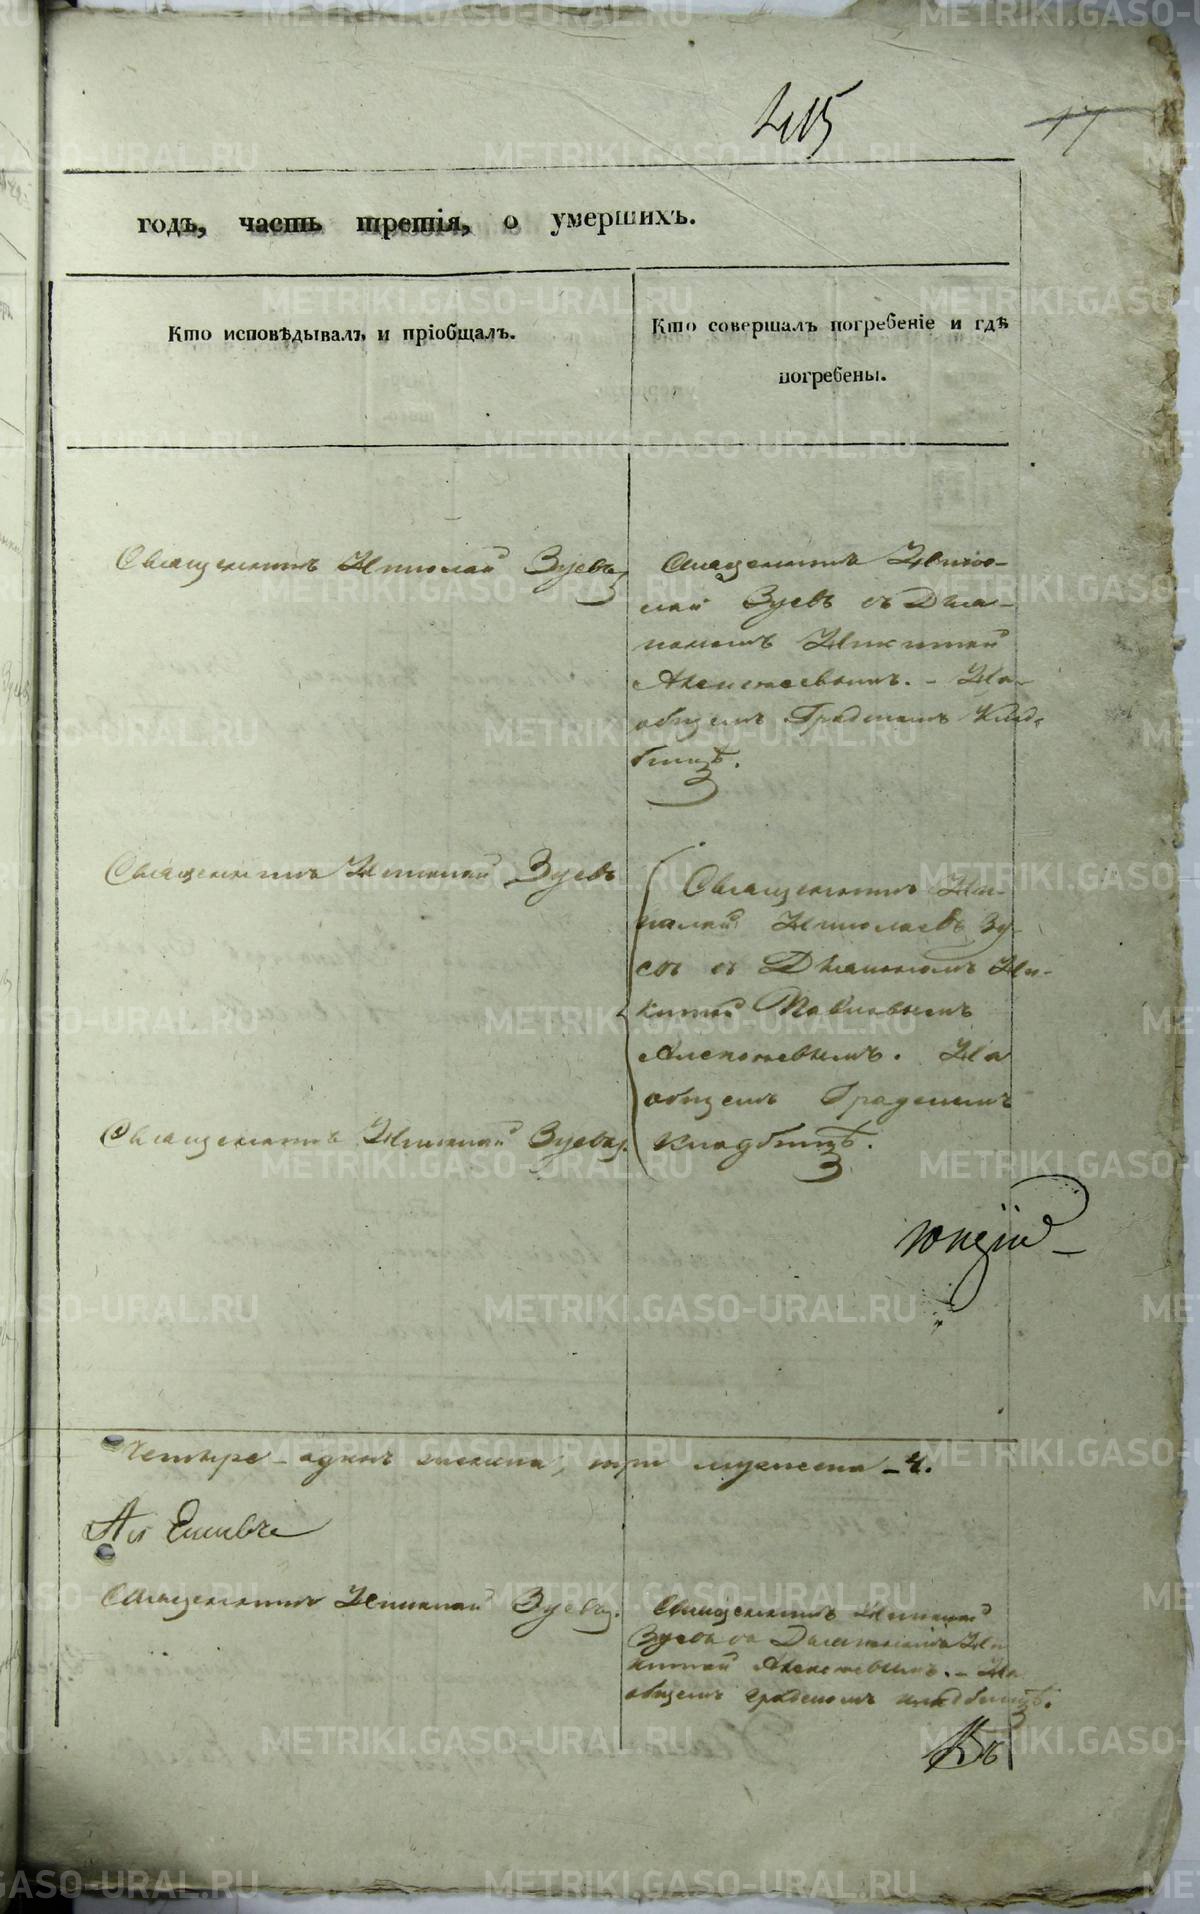 415
17
годъ, часть третія, о умершихъ.
Кто исповѣдывалъ и пріобщалъ.
Кто совершалъ погребеніе и гдѣ
погребены.
Священникъ Николай Зуевъ
Священникъ Нико-
лай Зуевъ съ Діа-
кономъ Никитой
Алексеевымъ. - На
общемъ Градскомъ Клад-
бищѣ.
Священникъ Николай Зуевъ
Священникъ Ни-
колай Николаевъ Зу-
евъ съ Діакономъ Ни-
китой Павловымъ
Алексеевымъ. На
общемъ Градскомъ
кладбищѣ.
Священникъ Николай Зуевъ.
Четыре - одного женска, три мужеска - 4.
Священникъ Николай Зуевъ.
Священникъ Николай
Зуевъ съ Діакономъ Ни
китой Алексеевымъ. - На
общемъ градскомъ кладбищѣ.
METRIKI.GASO-URAL.RU